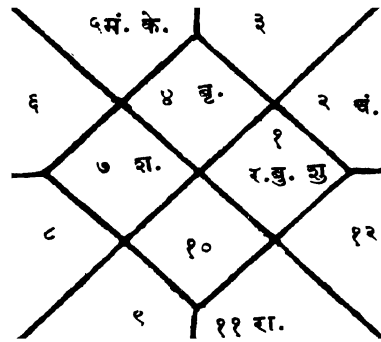 ५मं. के.
३
४ बृ.
६
२ चं.
१
७ श.
र.बु. शु
८
१०
१२
९
११ रा.